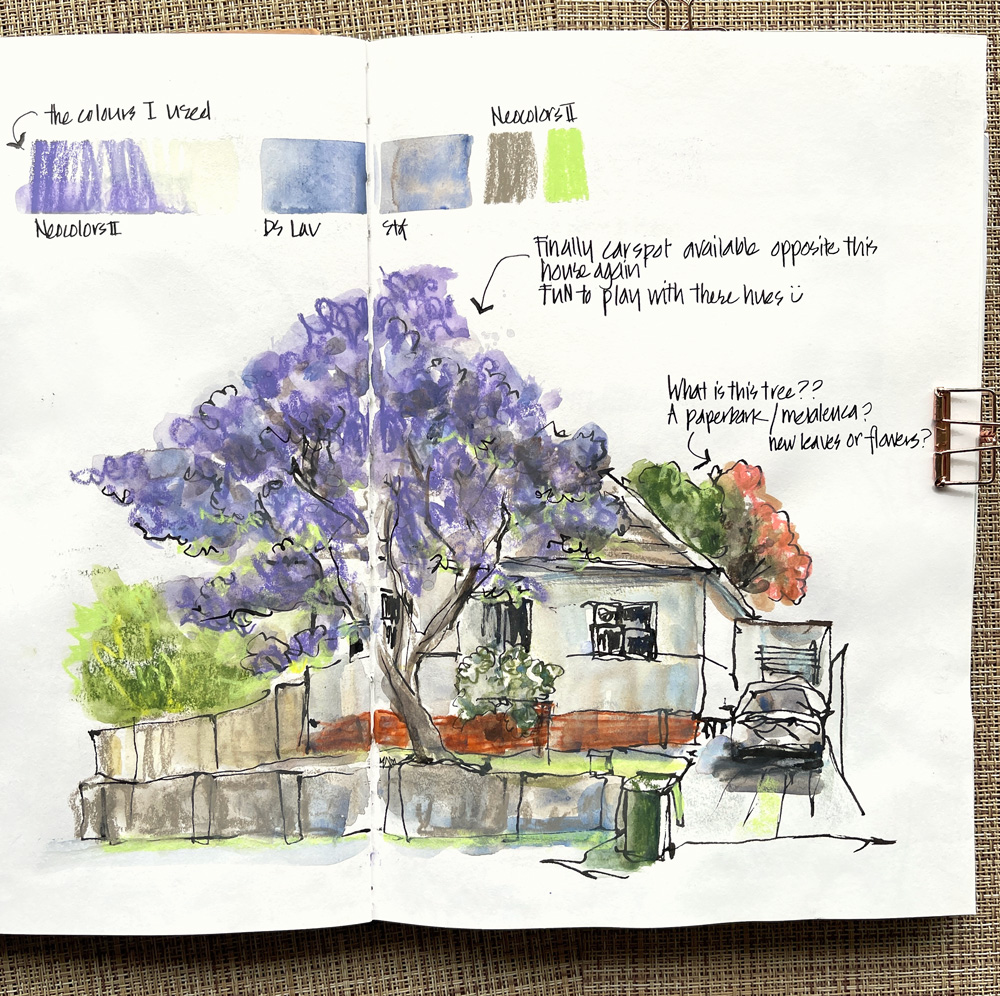 the colours I used
Neocolors II
Neocolors II
DS Lav
Finally car spot available opposite this
house again
FUN to play with these hues
What is this tree??
A paperbark/melaleuca?
new leaves or flowers?